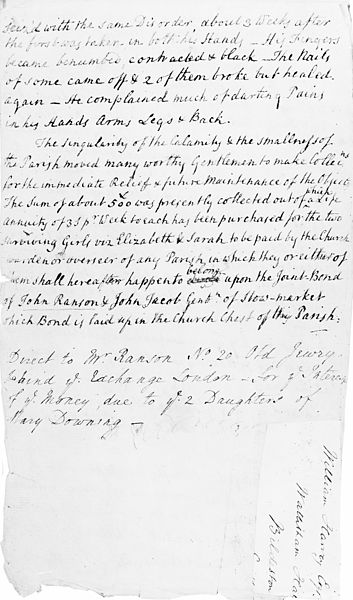 seiz'd with the same Disorder, about 3 Weeks after
the first was taken, in both his Hands – His Fingers
became benumbed, contracted & black – The Nails
of some came off & 2 of them broke but healed
again – He complained much of darting Pains
in his Hands Arms Legs & Back.
The Singularity of the Calamity & the smallness of
the Parish moved many worthy Gentlemen to make Collec.ns
for the immediate Relief & future Maintenance of the Objects
The Sum of about 500 was presently collected out of which a Life
annuity of 3s pr Week to each has been purchased for the two
surviving Girls viz Elizabeth & Sarah to be paid by the Church
warden or overseer of any Parish in which they or either of
them shall hereafter happen to belong upon the Joint-Bond
of John Ranson & John Jacob Gentn. of Stow-market
which Bond is laid up in the Church Chest of this Parish.
Direct to Mr. Ranson No. 20. Old Jewry
behind ye. Exchange London – for ye Interest
of ye. Money due to ye. 2 Daughters of
Mary Downing –
William Harry Esq
Wattisham
Bildeston